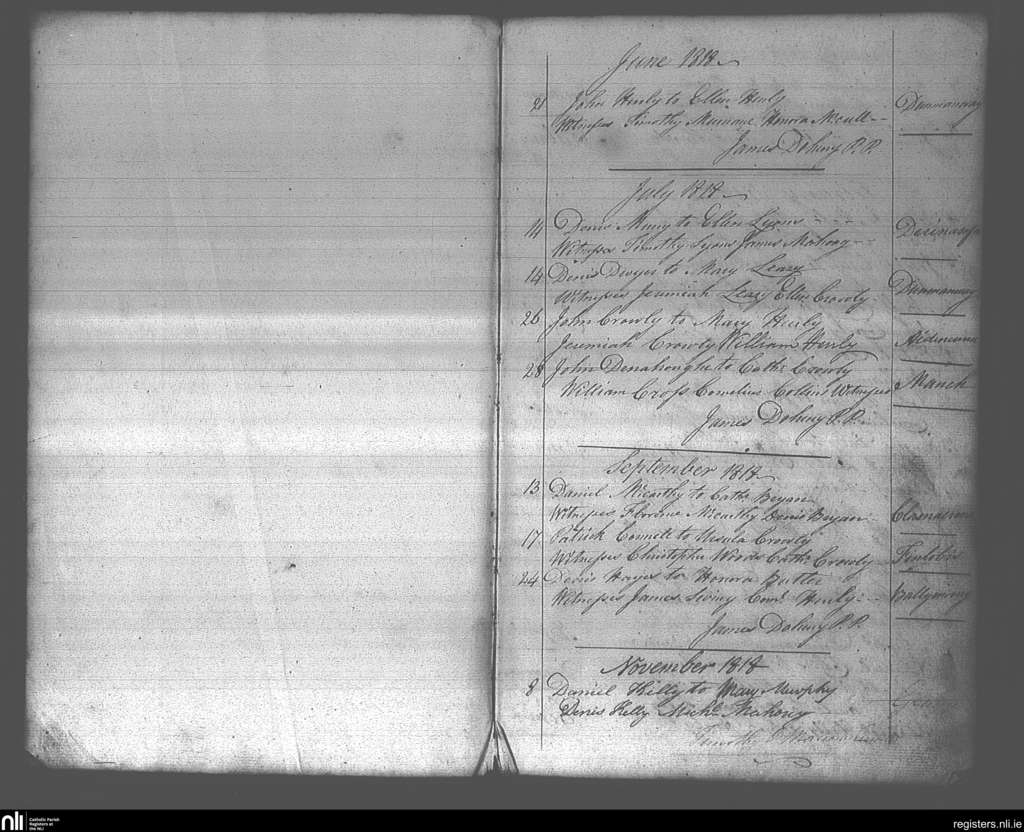 June 1818
21 John Hurly to Ellen Hurly Dunmanway
Witnesses Timothy Murnane Honora
James Doheny P.P.
July 1818
14 Denis to Ellen Lyons
Witnesses Timothy Lyons James Mahony
14 Denis Dwyer to Mary Leary Dunmanway
Witnesses Jeremiah Leary Ellen Crowly
26 John Crowly to Mary Hurly
Jeremiah Crowly William Hurly
28 John Donahoughe to Cathe Crowly Manch
William Cross Cornelius Collins Witnesses
James Doheny P.P.
September 1818
13 Daniel Mccarthy to Cathe Bryan
Witnesses Florence Mccarthy Denis Bryan
17 Patrick Connell to Ursula Crowly
Witnesses Christopher Woods Cathe Crowly
24 Denis Hayes to Honora Butler
Witnesses James Corns Hurly
James Doheny P.P.
November 1818
8 Daniel Killy to Mary Murphy
Denis Kelly Michl Mahony
nli Catholic Parish
Registers at
the NLI
registers.nli.ie